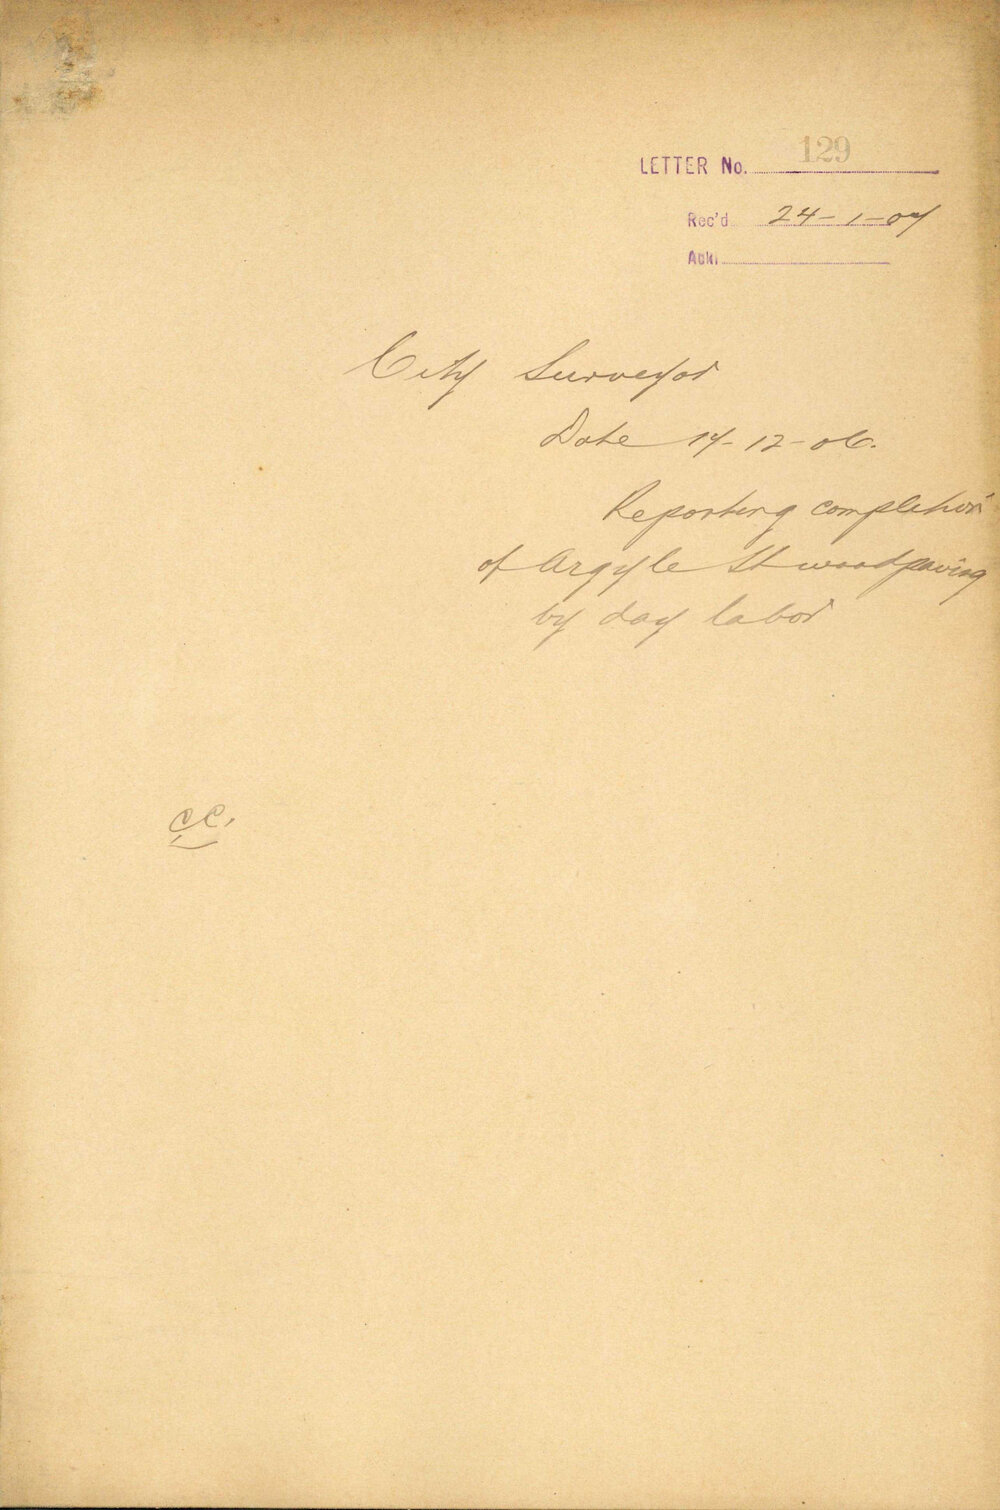 LETTER No. 129
Rec'd 24-1-07
Ack.
City Surveyor
Date 17-12-06.
Reporting completion
of Argyle St woodpaving
by day labor
CC.